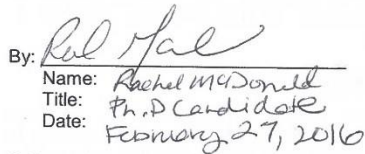 By:
Name: Rachel McDonald
Title: Ph.D Candidate
Date: February 27, 2016